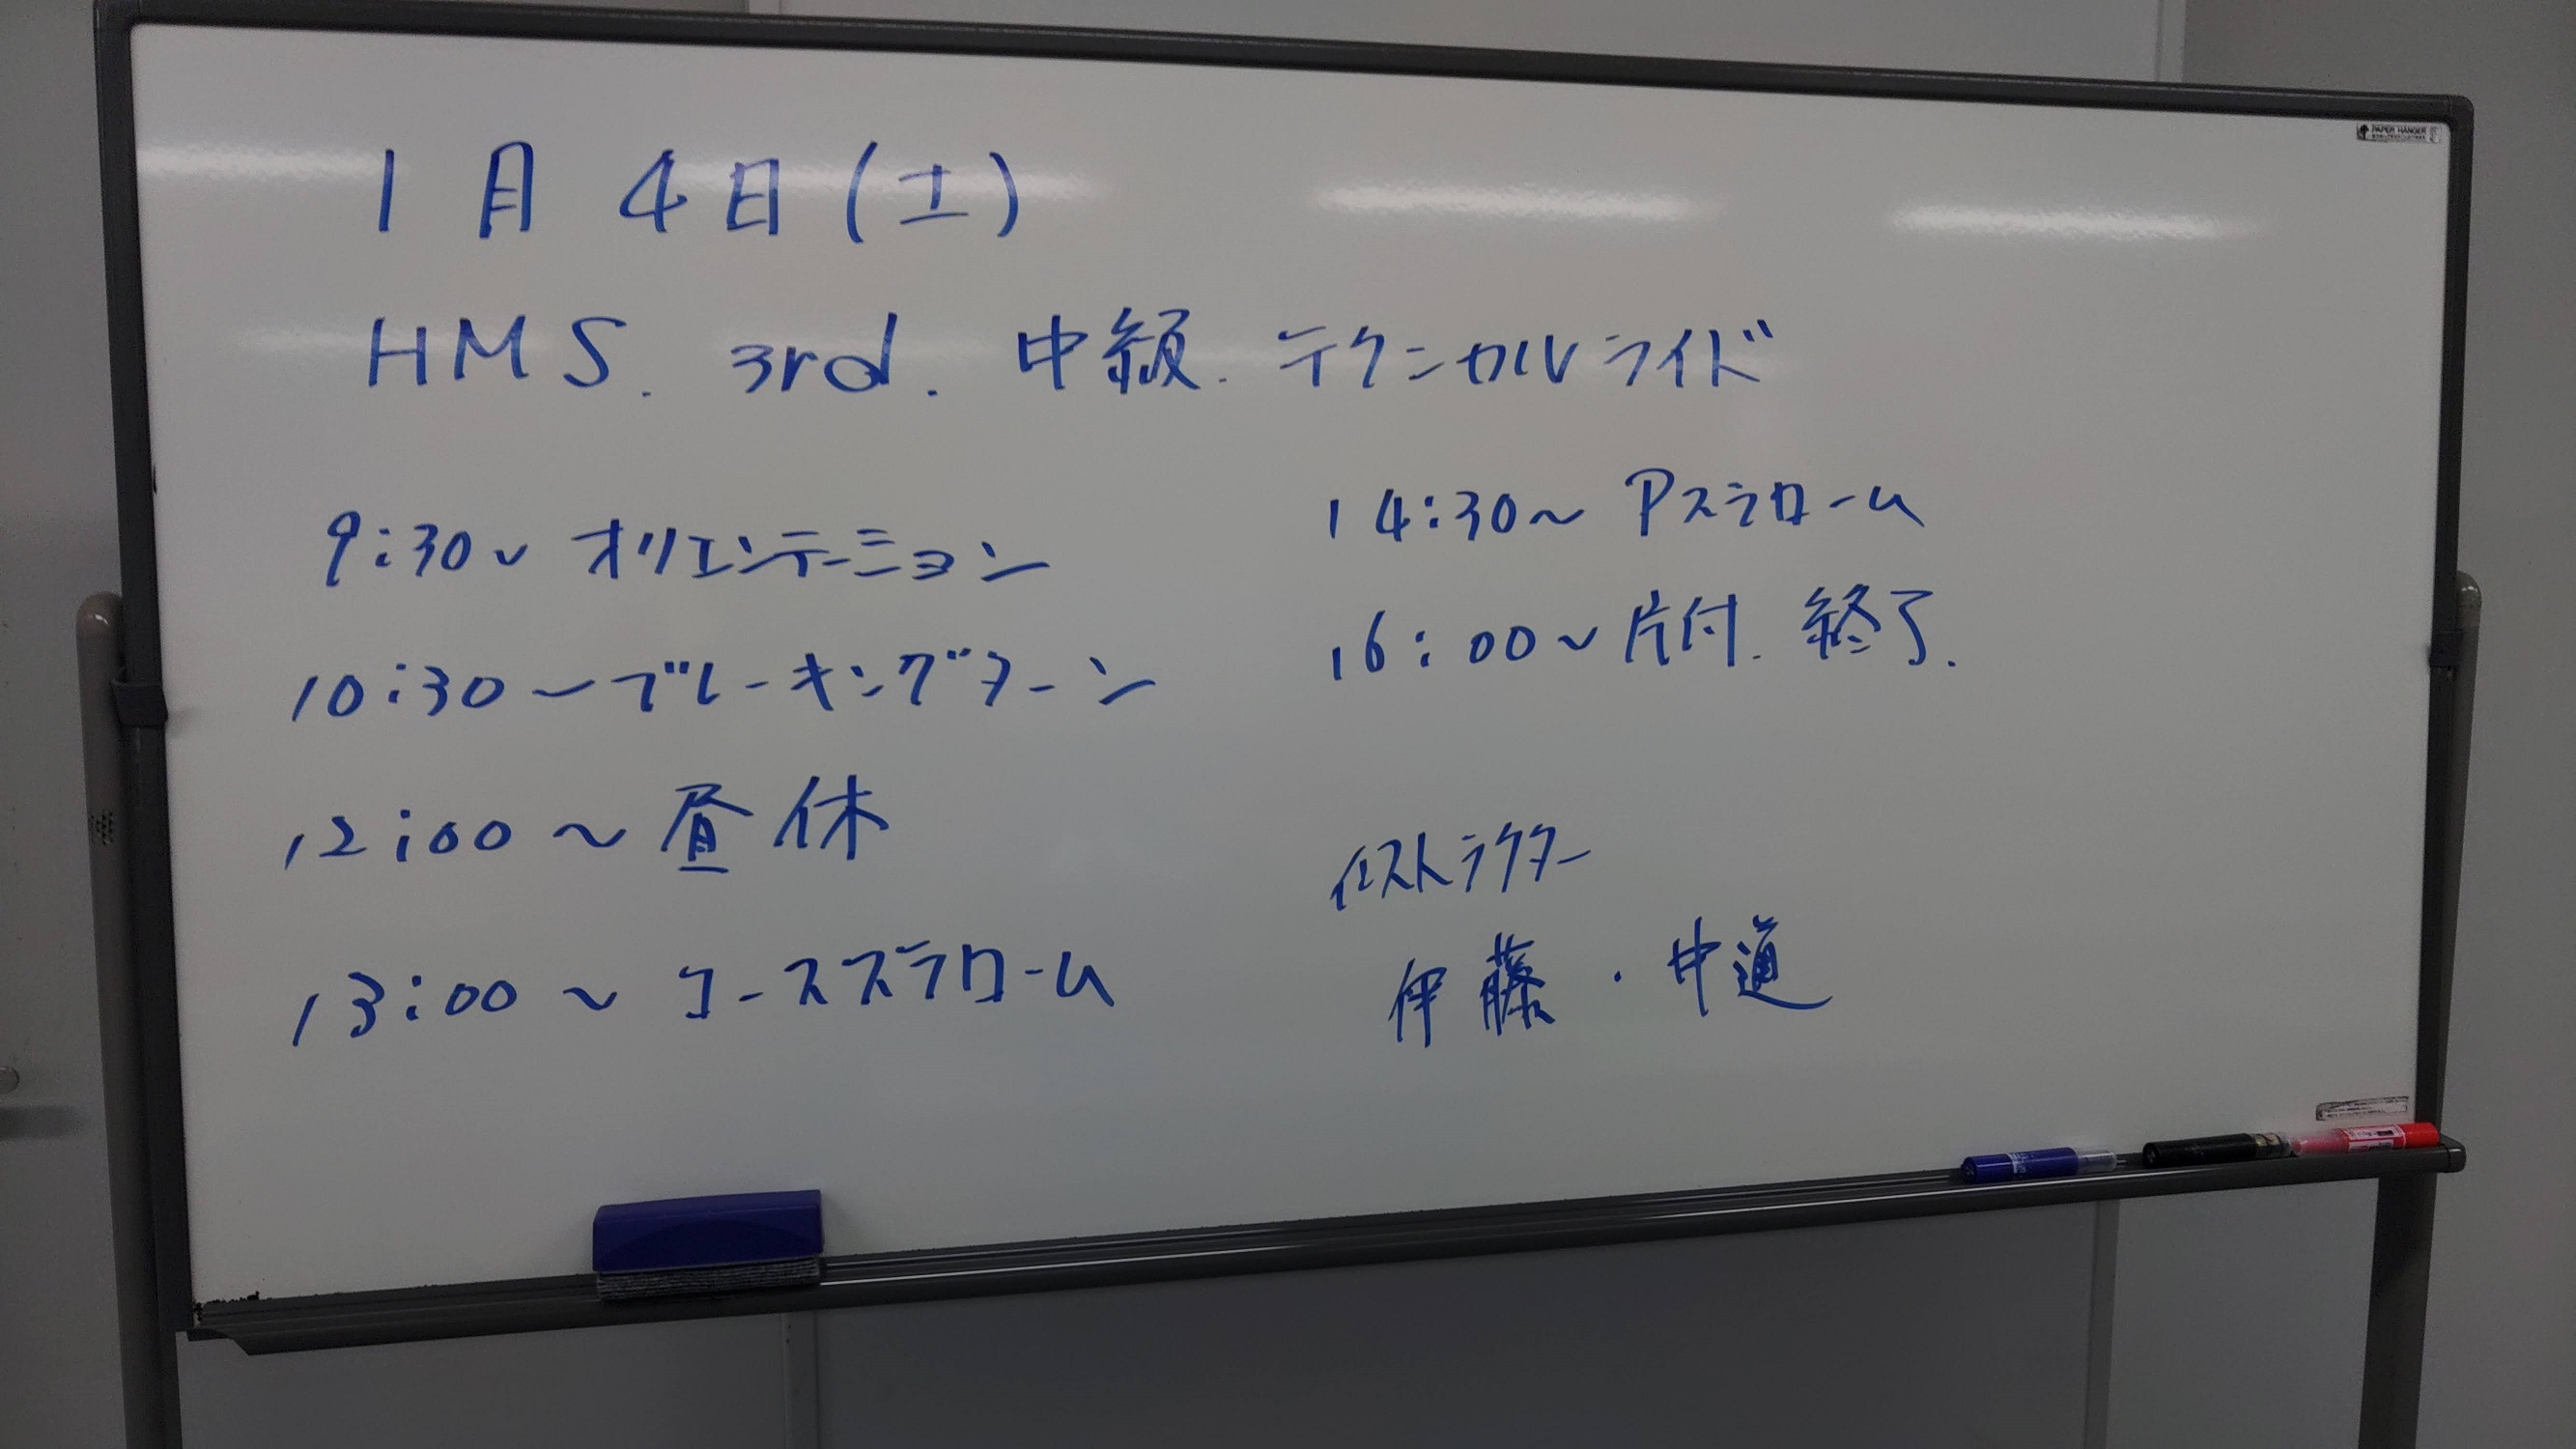 1月4日(土)
HMS. 3rd. 中級. テクニカルライド
9:30～ オリエンテーション
10:30～ブレーキングターン
12:00～昼休
13:00～コーススラローム
14:30～Pスラローム
16:00～片付. 終了.
インストラクター
伊藤・中道
PAPER HANGER